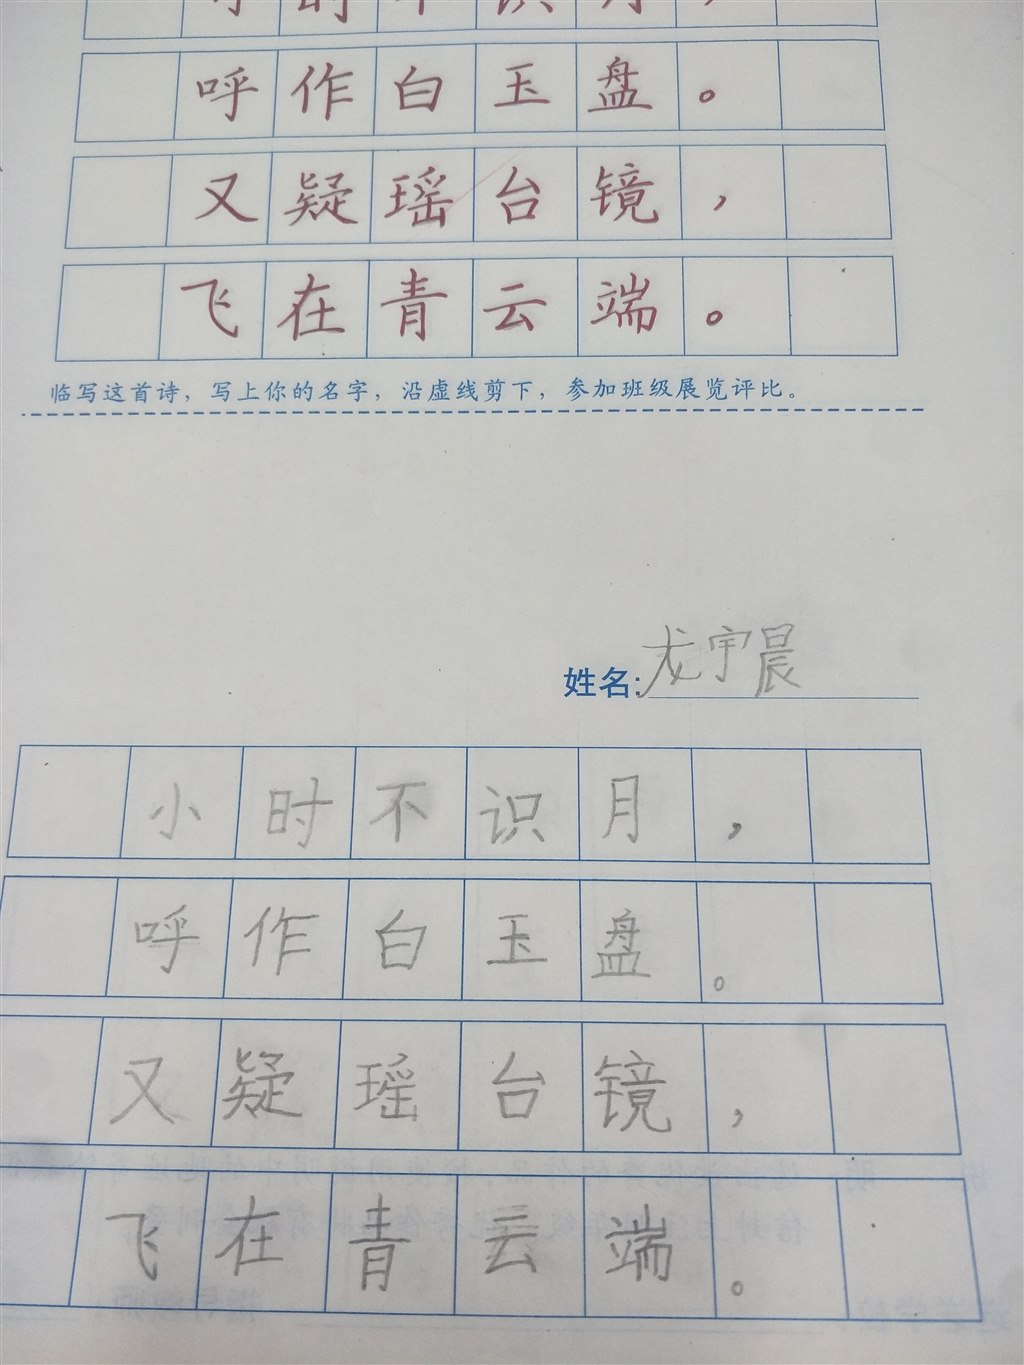 小时不识月，
呼作白玉盘。
又疑瑶台镜，
飞在青云端。
临写这首诗，写上你的名字，沿虚线剪下，参加班级展览评比。
姓名:龙宇晨
小时不识月，
呼作白玉盘。
又疑瑶台镜，
飞在青云端。